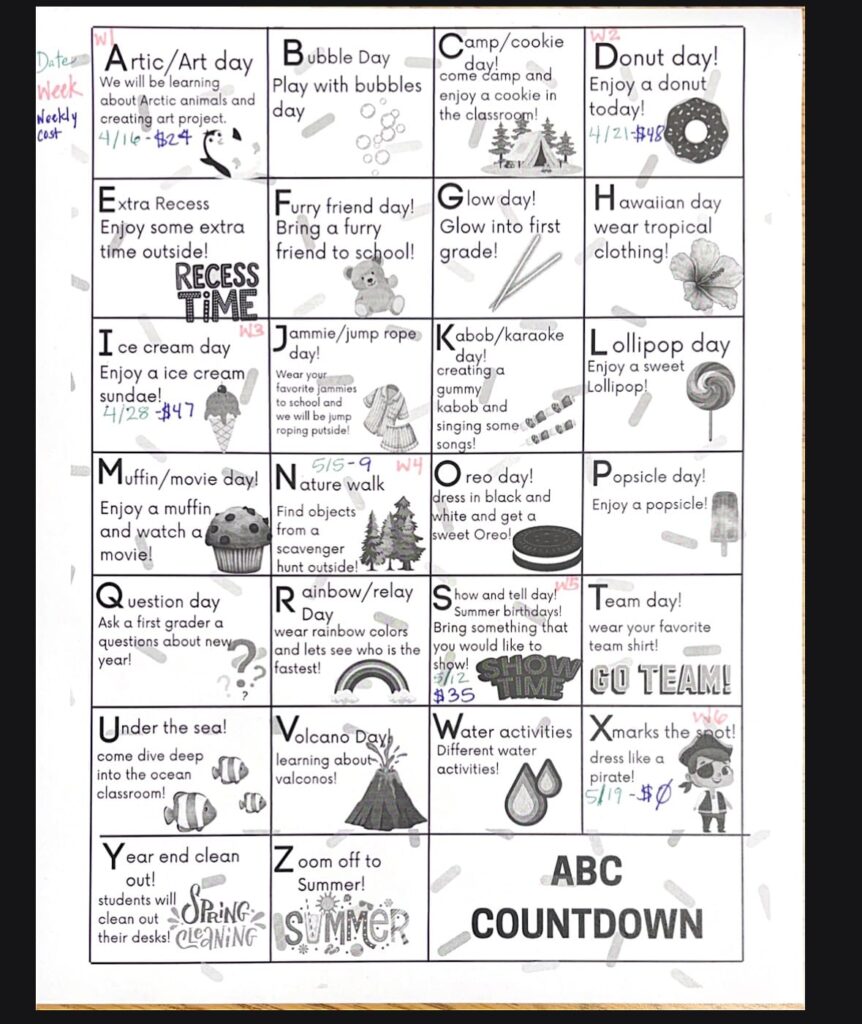 Date
Week
Weekly
cost
W1
Artic/Art day
We will be learning
about Arctic animals and
creating art project.
4/16-$24
Bubble Day
Play with bubbles
day
Camp/cookie
day!
come camp and
enjoy a cookie in
the classroom!
W2
Donut day!
Enjoy a donut
today!
4/21-$48
Extra Recess
Enjoy some extra
time outside!
RECESS
TiME
Furry friend day!
Bring a furry
friend to school!
Glow day!
Glow into first
grade!
Hawaiian day
wear tropical
clothing!
W3
Ice cream day
Enjoy a ice cream
sundae!
4/28-$47
Jammie/jump rope
day!
Wear your
favorite jammies
to school and
we will be jump
roping putside!
Kabob/karaoke
day!
creating a
gummy
kabob and
singing some
songs!
Lollipop day
Enjoy a sweet
Lollipop!
Muffin/movie day!
Enjoy a muffin
and watch a
movie!
5/5-9 W4
Nature walk
Find objects
from a
scavenger
hunt outside!
Oreo day!
dress in black and
white and get a
sweet Oreo!
Popsicle day!
Enjoy a popsicle!
Question day
Ask a first grader a
questions about new
year!
Rainbow/relay
Day
wear rainbow colors
and lets see who is the
fastest!
W5
Show and tell day!
Summer birthdays!
Bring something that
you would like to
show!
5/12
$35
SHOW
TIME
Team day!
wear your favorite
team shirt!
GO TEAM!
Under the sea!
come dive deep
into the ocean
classroom!
Volcano Day!
learning about
valconos!
Water activities
Different water
activities!
W6
Xmarks the spot!
dress like a
pirate!
5/19-$0
Year end clean
out!
students will
clean out
their desks!
SPRiNG
CLEANiNG
Zoom off to
Summer!
SUMMER
ABC
COUNTDOWN